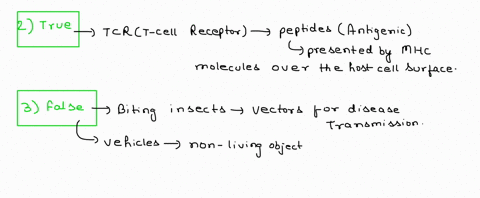 2) True → TCR (T-cell Receptor) → peptides (Antigenic)
↳ presented by MHC
molecules over the host cell surface.
3) False → Biting insects → vectors for disease
Transmission.
↳ vehicles → non-living object